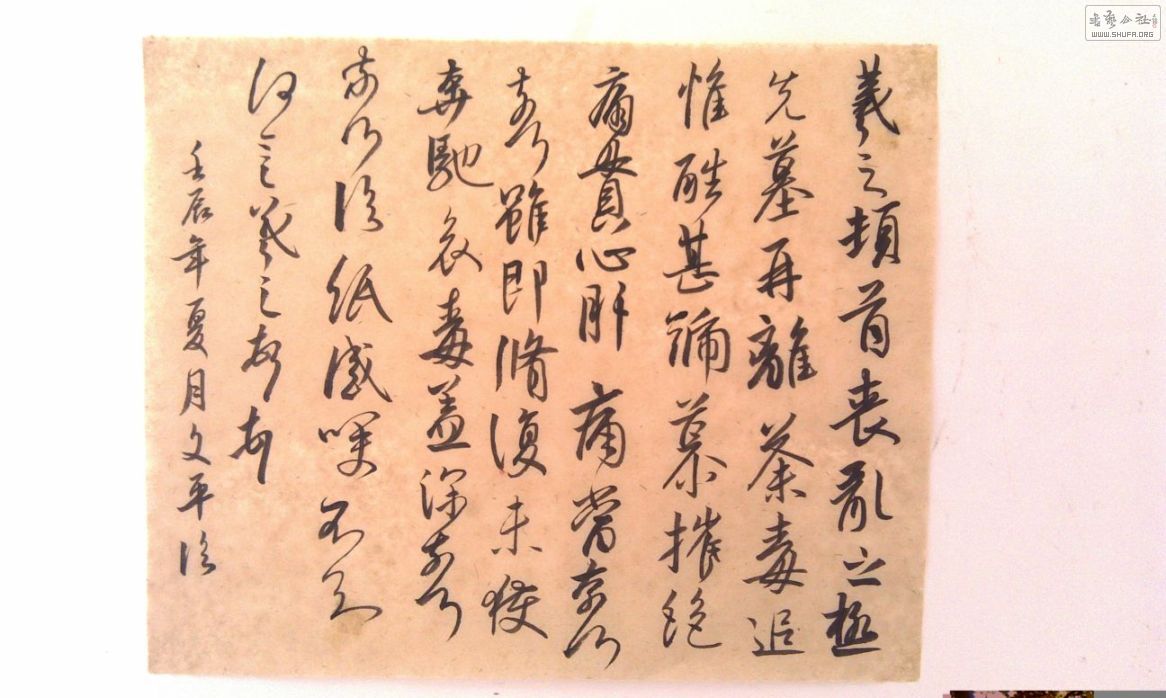 羲之頓首喪亂之極
先墓再離荼毒追
惟酷甚號慕摧絕
痛貫心肝痛當奈何
奈何雖即脩復未獲
奔馳哀毒益深奈何
奈何臨紙感哽不知
何言羲之頓首
壬辰年夏月文平臨
書藝公社
WWW.SHUFA.ORG